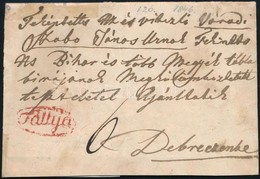 120. 1846
Tekintetes Ns és vitézlő Váradi
Szabo János Urnak Tekintetes
Ns Bihar és több Megyék tábla
birájának
tisztelettel ajánltatik
Tállya
6 Debreczenbe